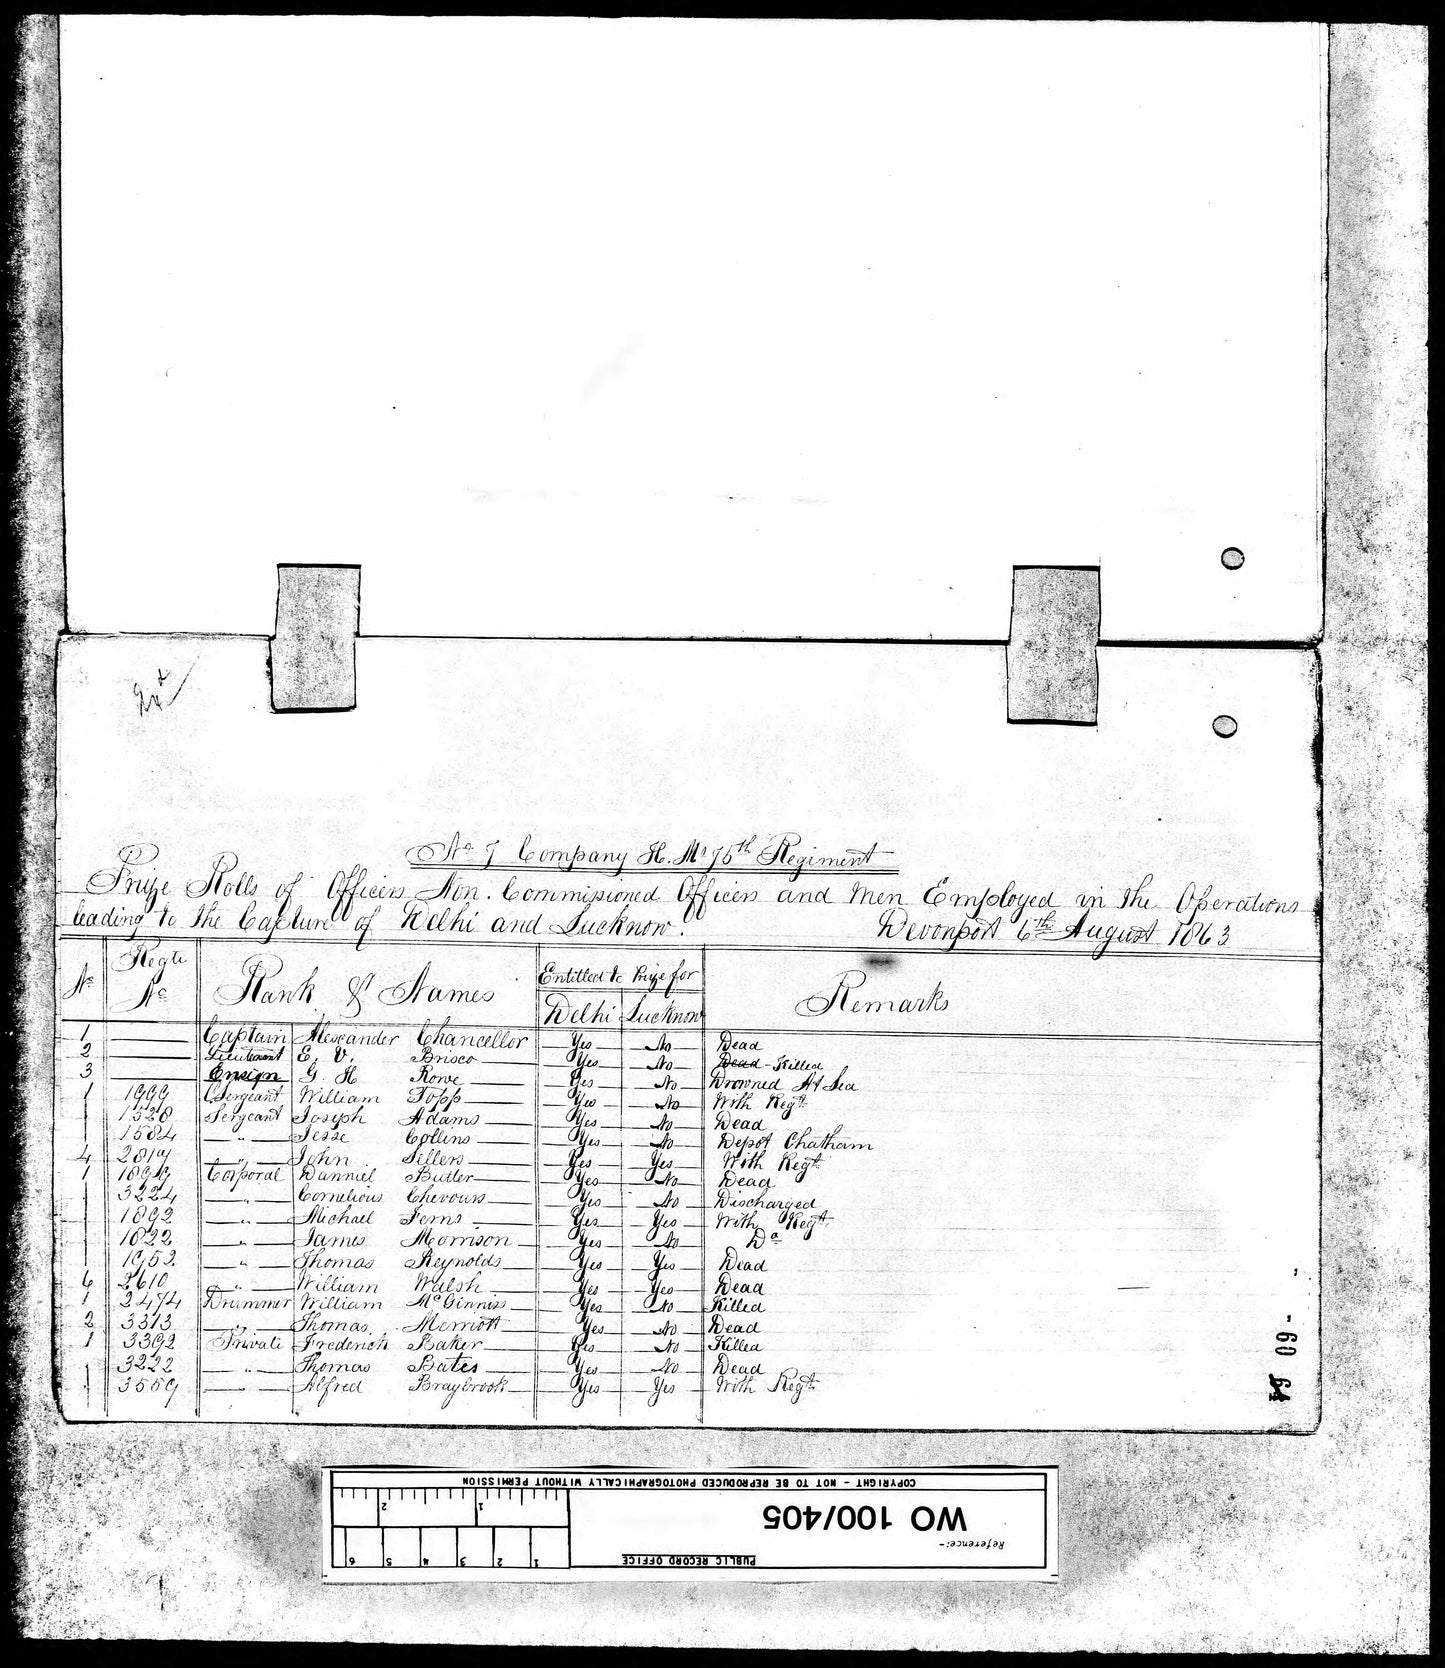 No 7 Company H. Ms 75th Regiment
Prize Rolls of Officers Non. Commissioned Officers and Men Employed in the Operations
leading to the Capture of Delhi and Lucknow.
Devonport 6th August 1863
No Regtl No Rank & Names Entitled to Prize for Remarks
Delhi Lucknow
1 Captain Alexander Chancellor Yes No Dead
2 Lieutenant E. V. Brisco Yes No Dead - Killed
3 Ensign G. H Rowe Yes No Drowned At Sea
1 1999 CSergeant William Topp Yes No With Regt
1528 Sergeant Joseph Adams Yes No Dead
1584 " Jesse Collins Yes No Depot Chatham
4 2819 " John Sellers Yes Yes With Regt
1 1899 Corporal Danniel Butler Yes No Dead
3224 " Cornelious Chevours Yes No Discharged
1892 " Michael Ferns Yes Yes With Regt
1822 " James Morrison Yes No Do
1953 " Thomas Reynolds Yes Yes Dead
6 2610 " William Walsh Yes Yes Dead
1 2474 Drummer William McGinniss Yes No Killed
2 3313 " Thomas Merriott Yes No Dead
1 3392 Private Frederick Baker Yes No Killed
3222 " Thomas Bates Yes No Dead
3559 " Alfred Braybrook Yes Yes With Regt
PUBLIC RECORD OFFICE
Reference:-
WO 100/405
COPYRIGHT - NOT TO BE REPRODUCED PHOTOGRAPHICALLY WITHOUT PERMISSION
1 2 3 4 5 6
1 2